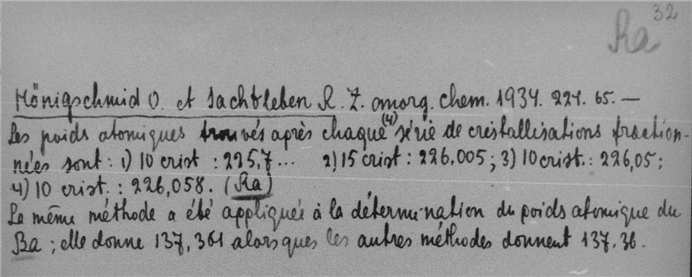 Ra 32
Hönigschmid O. et Sachtleben R. Z. anorg. chem. 1934. 221. 65. —
Les poids atomiques trouvés après chaque (4) série de cristallisations fraction-
nées sont: 1) 10 crist : 225,7... 2) 15 crist : 226,005; 3) 10 crist. : 226,05;
4) 10 crist. : 226,058. (Ra)
La même méthode a été appliquée à la détermination du poids atomique du
Ba; elle donne 137,361 alors que les autres méthodes donnent 137,36.